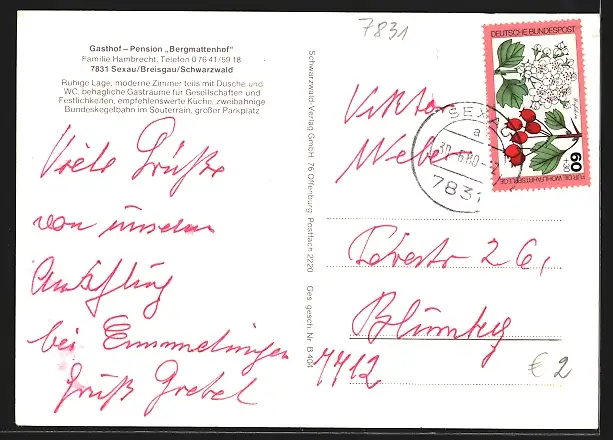 7831
Gasthof – Pension „Bergmattenhof"
Familie Hambrecht, Telefon 0 76 41/59 18
7831 Sexau/Breisgau/Schwarzwald
Ruhige Lage, moderne Zimmer teils mit Dusche und
WC, behagliche Gasträume für Gesellschaften und
Festlichkeiten, empfehlenswerte Küche, zweibahnige
Bundeskegelbahn im Souterrain, großer Parkplatz
Viele Grüße
von unserem
Ausflug
bei Emmendingen
Gruß
Schwarzwald Verlag GmbH, 76 Offenburg, Postfach 2220 Ges. gesch. Nr. B 404
DEUTSCHE BUNDESPOST
60
+30
FÜR DIE WOHLFAHRTSPFLEGE
SEXAU
a
30.-6.80
7831
Viktor
Weber
26,
Blumberg
7712
€ 2